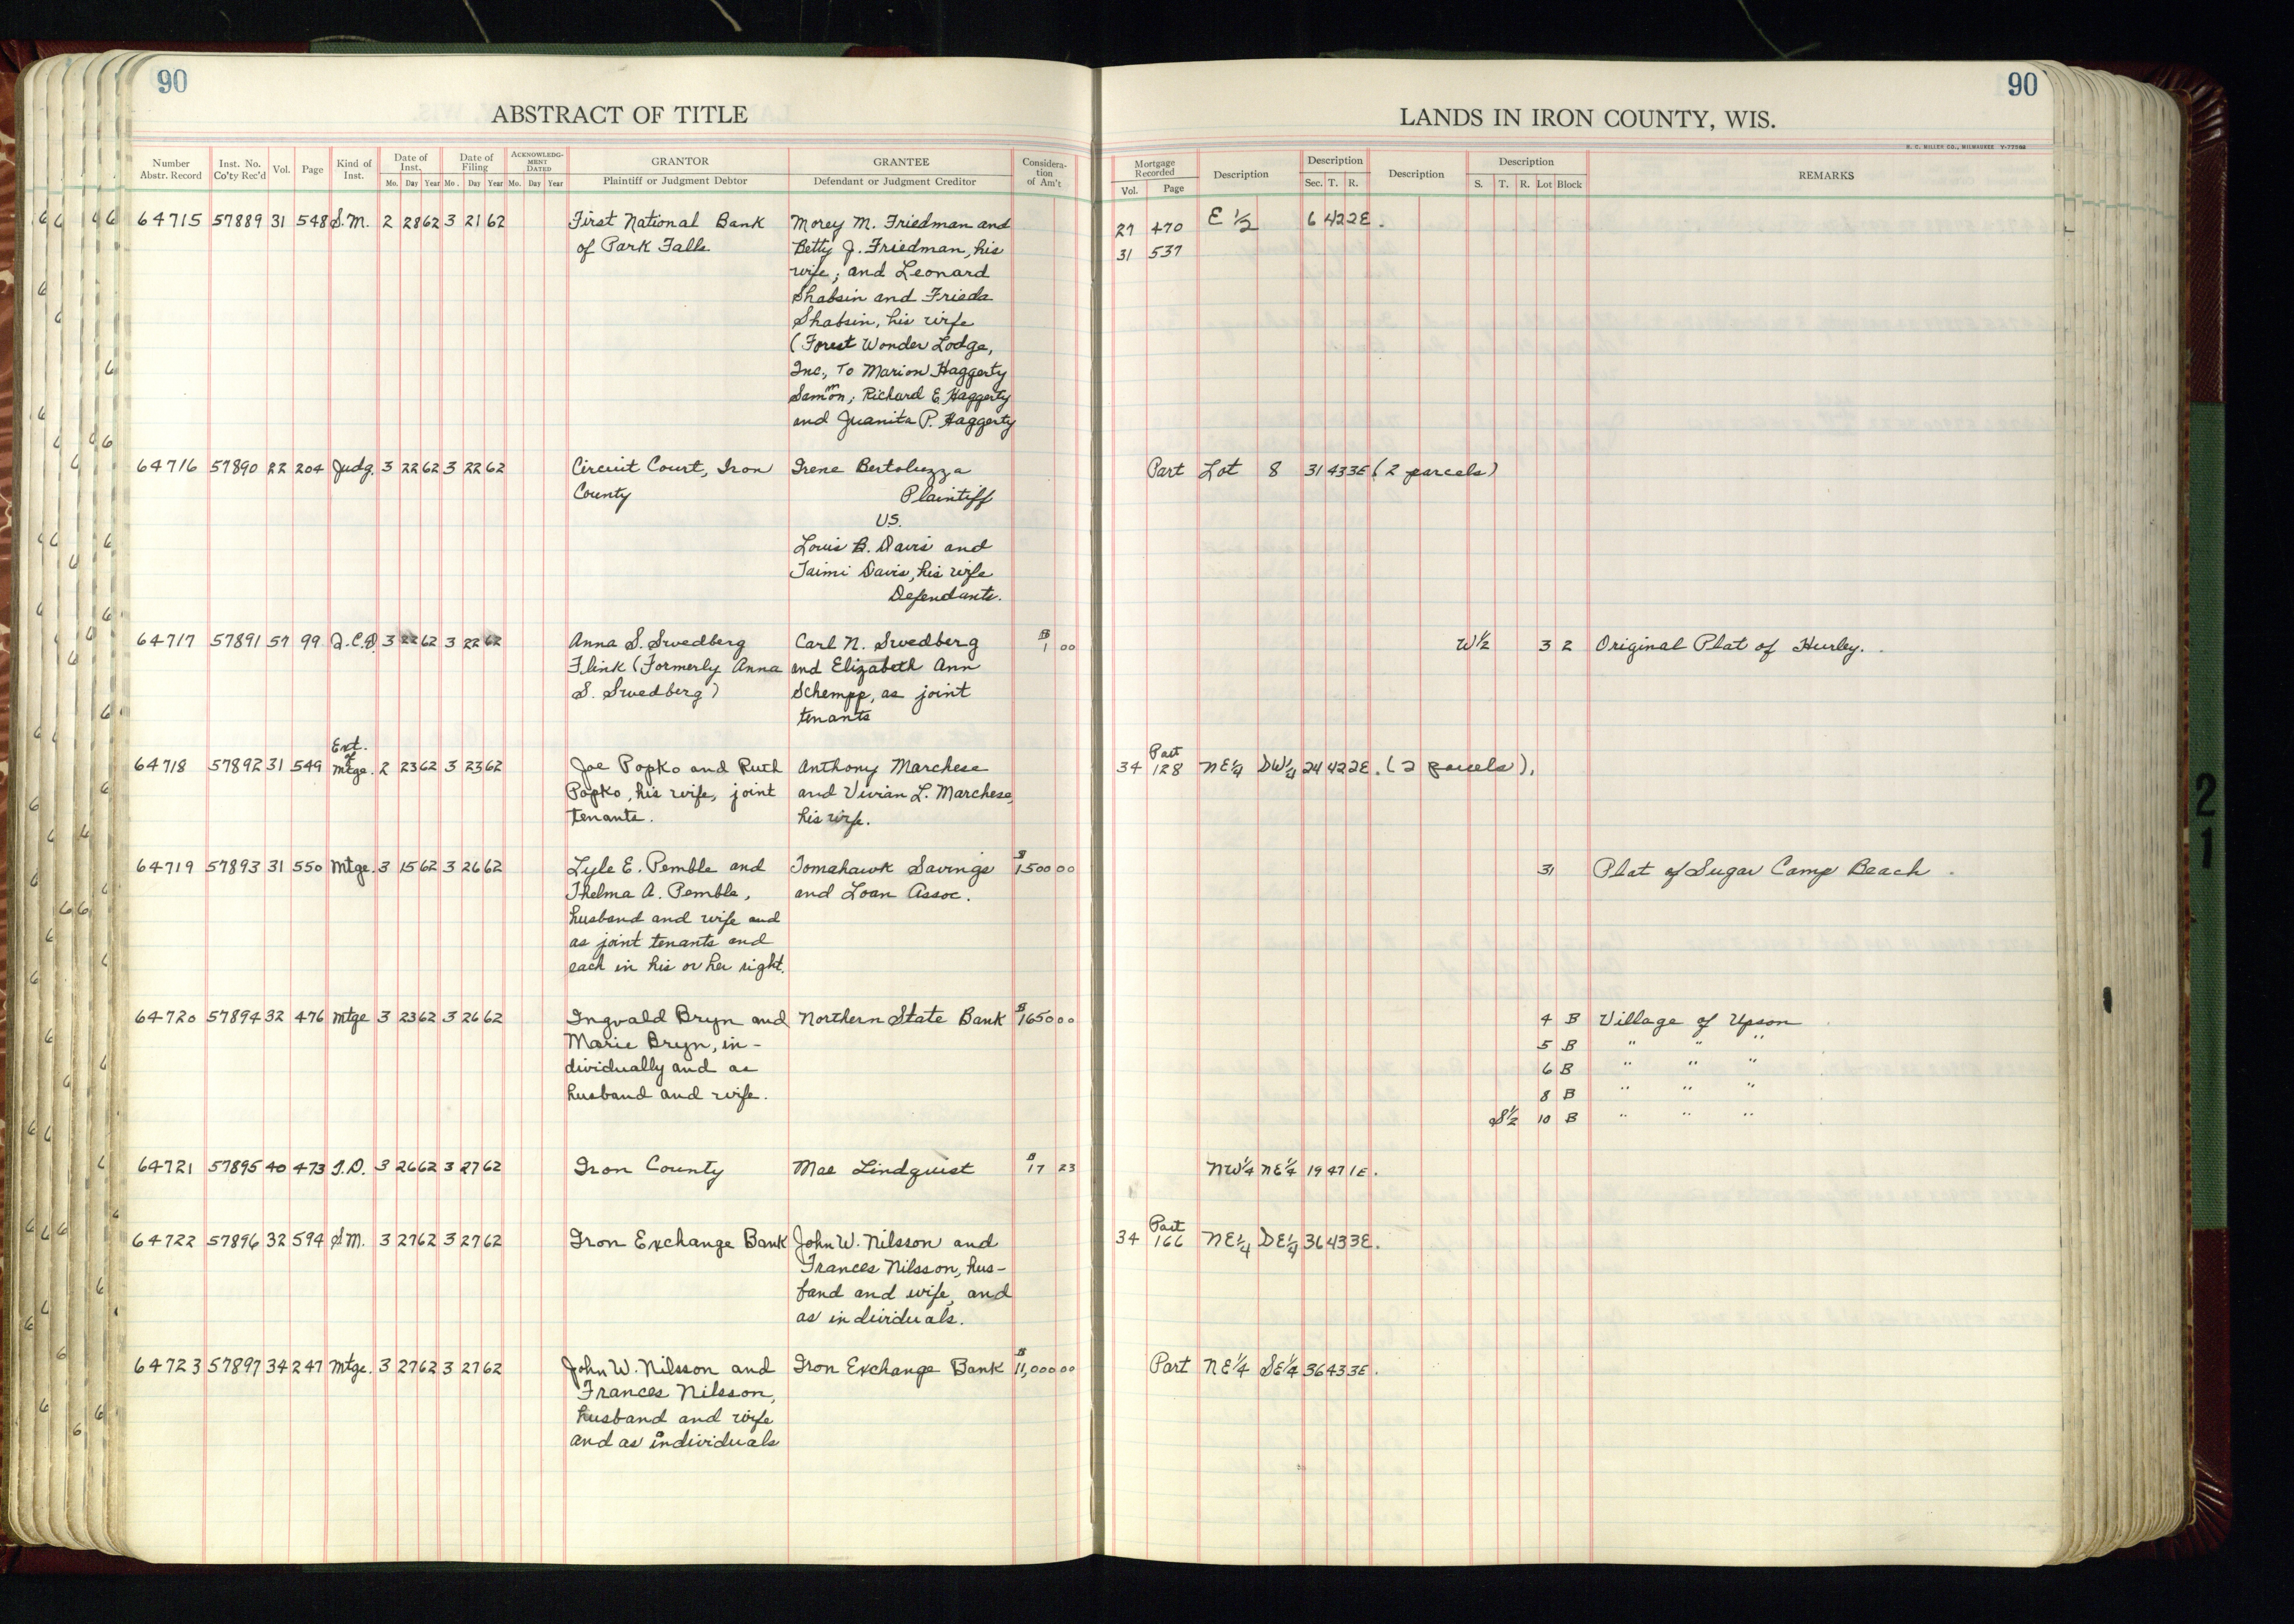 90
90
ABSTRACT OF TITLE
LANDS IN IRON COUNTY, WIS.
H. C. MILLER CO., MILWAUKEE
Number Abstr. Record Inst. No. Co'ty Rec'd Vol. Page Kind of Inst. Date of Inst. Mo. Day Year Date of Filing Mo. Day Year ACKNOWLEDGMENT DATED Mo. Day Year GRANTOR Plaintiff or Judgment Debtor GRANTEE Defendant or Judgment Creditor Consideration of Am't
Mortgage Recorded Vol. Page Description Description Sec. T. R. Description Description S. T. R. Lot Block REMARKS
64715 57889 31 548 S.M. 2 28 62 3 21 62 First National Bank Morey M. Friedman and 27 470 E 1/2 6 42 2E.
of Park Falls Betty J. Friedman, his 31 537
wife; and Leonard
Shabsin and Frieda
Shabsin, his wife
(Forest Wonder Lodge,
Inc., To Marion Haggerty
Sammon; Richard E. Haggerty
and Juanita P. Haggerty
64716 57890 22 204 Judg. 3 22 62 3 22 62 Circuit Court, Iron Irene Bertoluzza Part Lot 8 31 43 3E (2 parcels)
County Plaintiff
VS.
Louis B. Davis and
Taimi Davis, his wife
Defendants.
64717 57891 57 99 Q.C.D. 3 22 62 3 22 62 Anna S. Swedberg Carl N. Swedberg $1 00 W 1/2 3 2 Original Plat of Hurley.
Flink (Formerly Anna and Elizabeth Ann
S. Swedberg) Schempp, as joint
tenants
Ext. of
64718 57892 31 549 mtge. 2 23 62 3 23 62 Joe Popko and Ruth Anthony Marchese 34 128 Part NE 1/4 DW 1/4 24 42 2E. (2 parcels).
Popko, his wife, joint and Vivian L. Marchese,
tenants. his wife.
64719 57893 31 550 Mtge. 3 15 62 3 26 62 Lyle E. Pemble and Tomahawk Savings $1500 00 31 Plat of Sugar Camp Beach.
Thelma A. Pemble, and Loan Assoc.
husband and wife and
as joint tenants and
each in his or her right.
64720 57894 32 476 mtge 3 23 62 3 26 62 Ingvald Bryn and Northern State Bank $1650 00 4 B Village of Upson
Marie Bryn, in- 5 B " " "
dividually and as 6 B " " "
husband and wife. 8 B " " "
S 1/2 10 B " " "
64721 57895 40 473 T.D. 3 26 62 3 27 62 Iron County Mae Lindquist $17 23 NW 1/4 NE 1/4 19 47 1E.
64722 57896 32 594 S.M. 3 27 62 3 27 62 Iron Exchange Bank John W. Nilsson and 34 166 Part NE 1/4 DE 1/4 36 43 3E.
Frances Nilsson, hus-
band and wife, and
as individuals.
64723 57897 34 247 Mtge. 3 27 62 3 27 62 John W. Nilsson and Iron Exchange Bank $11,000 00 Part NE 1/4 SE 1/4 36 43 3E.
Frances Nilsson,
husband and wife
and as individuals
21